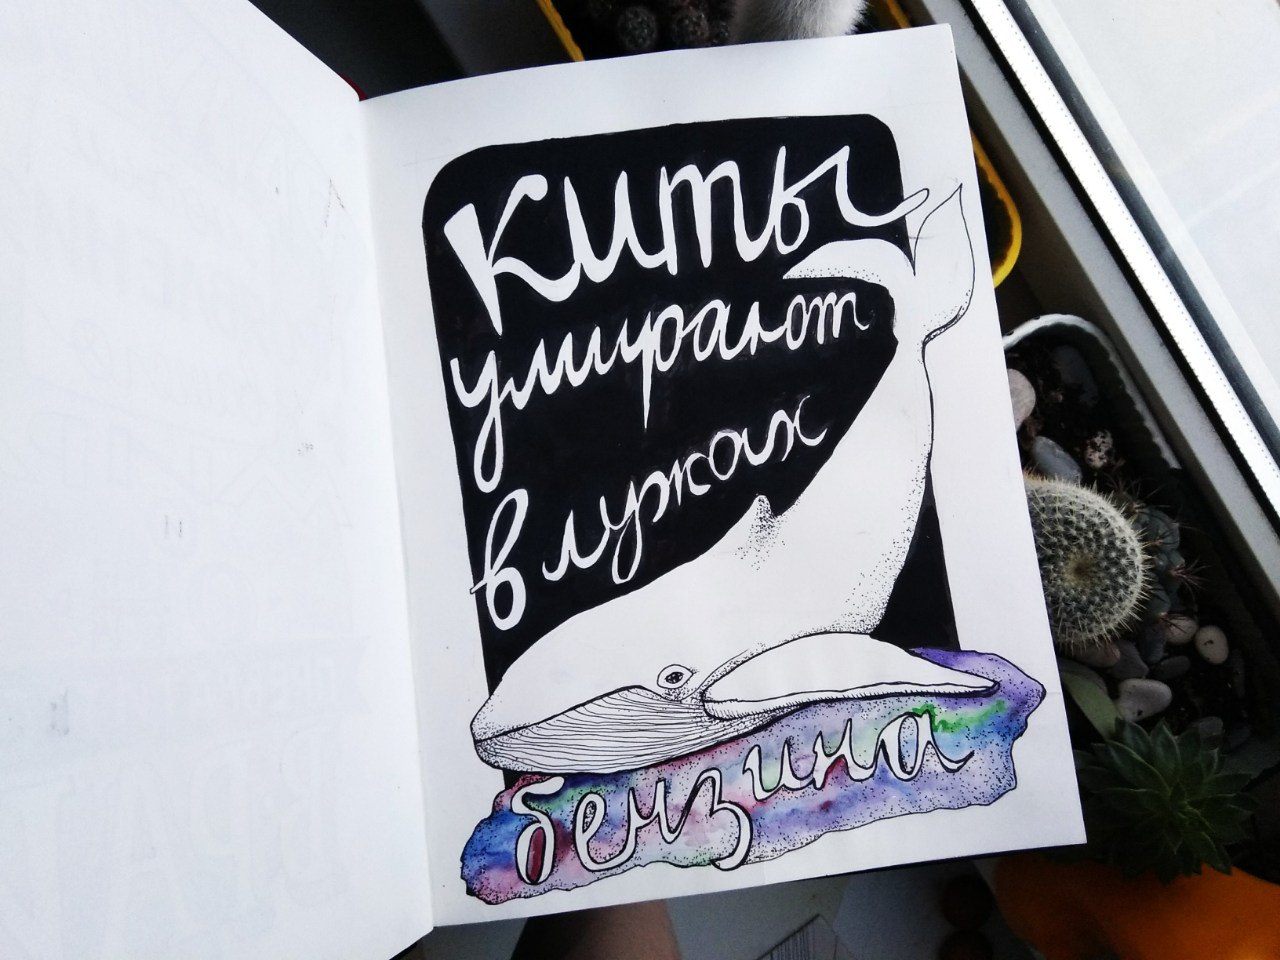 Киты
умирают
в лужах
бензина